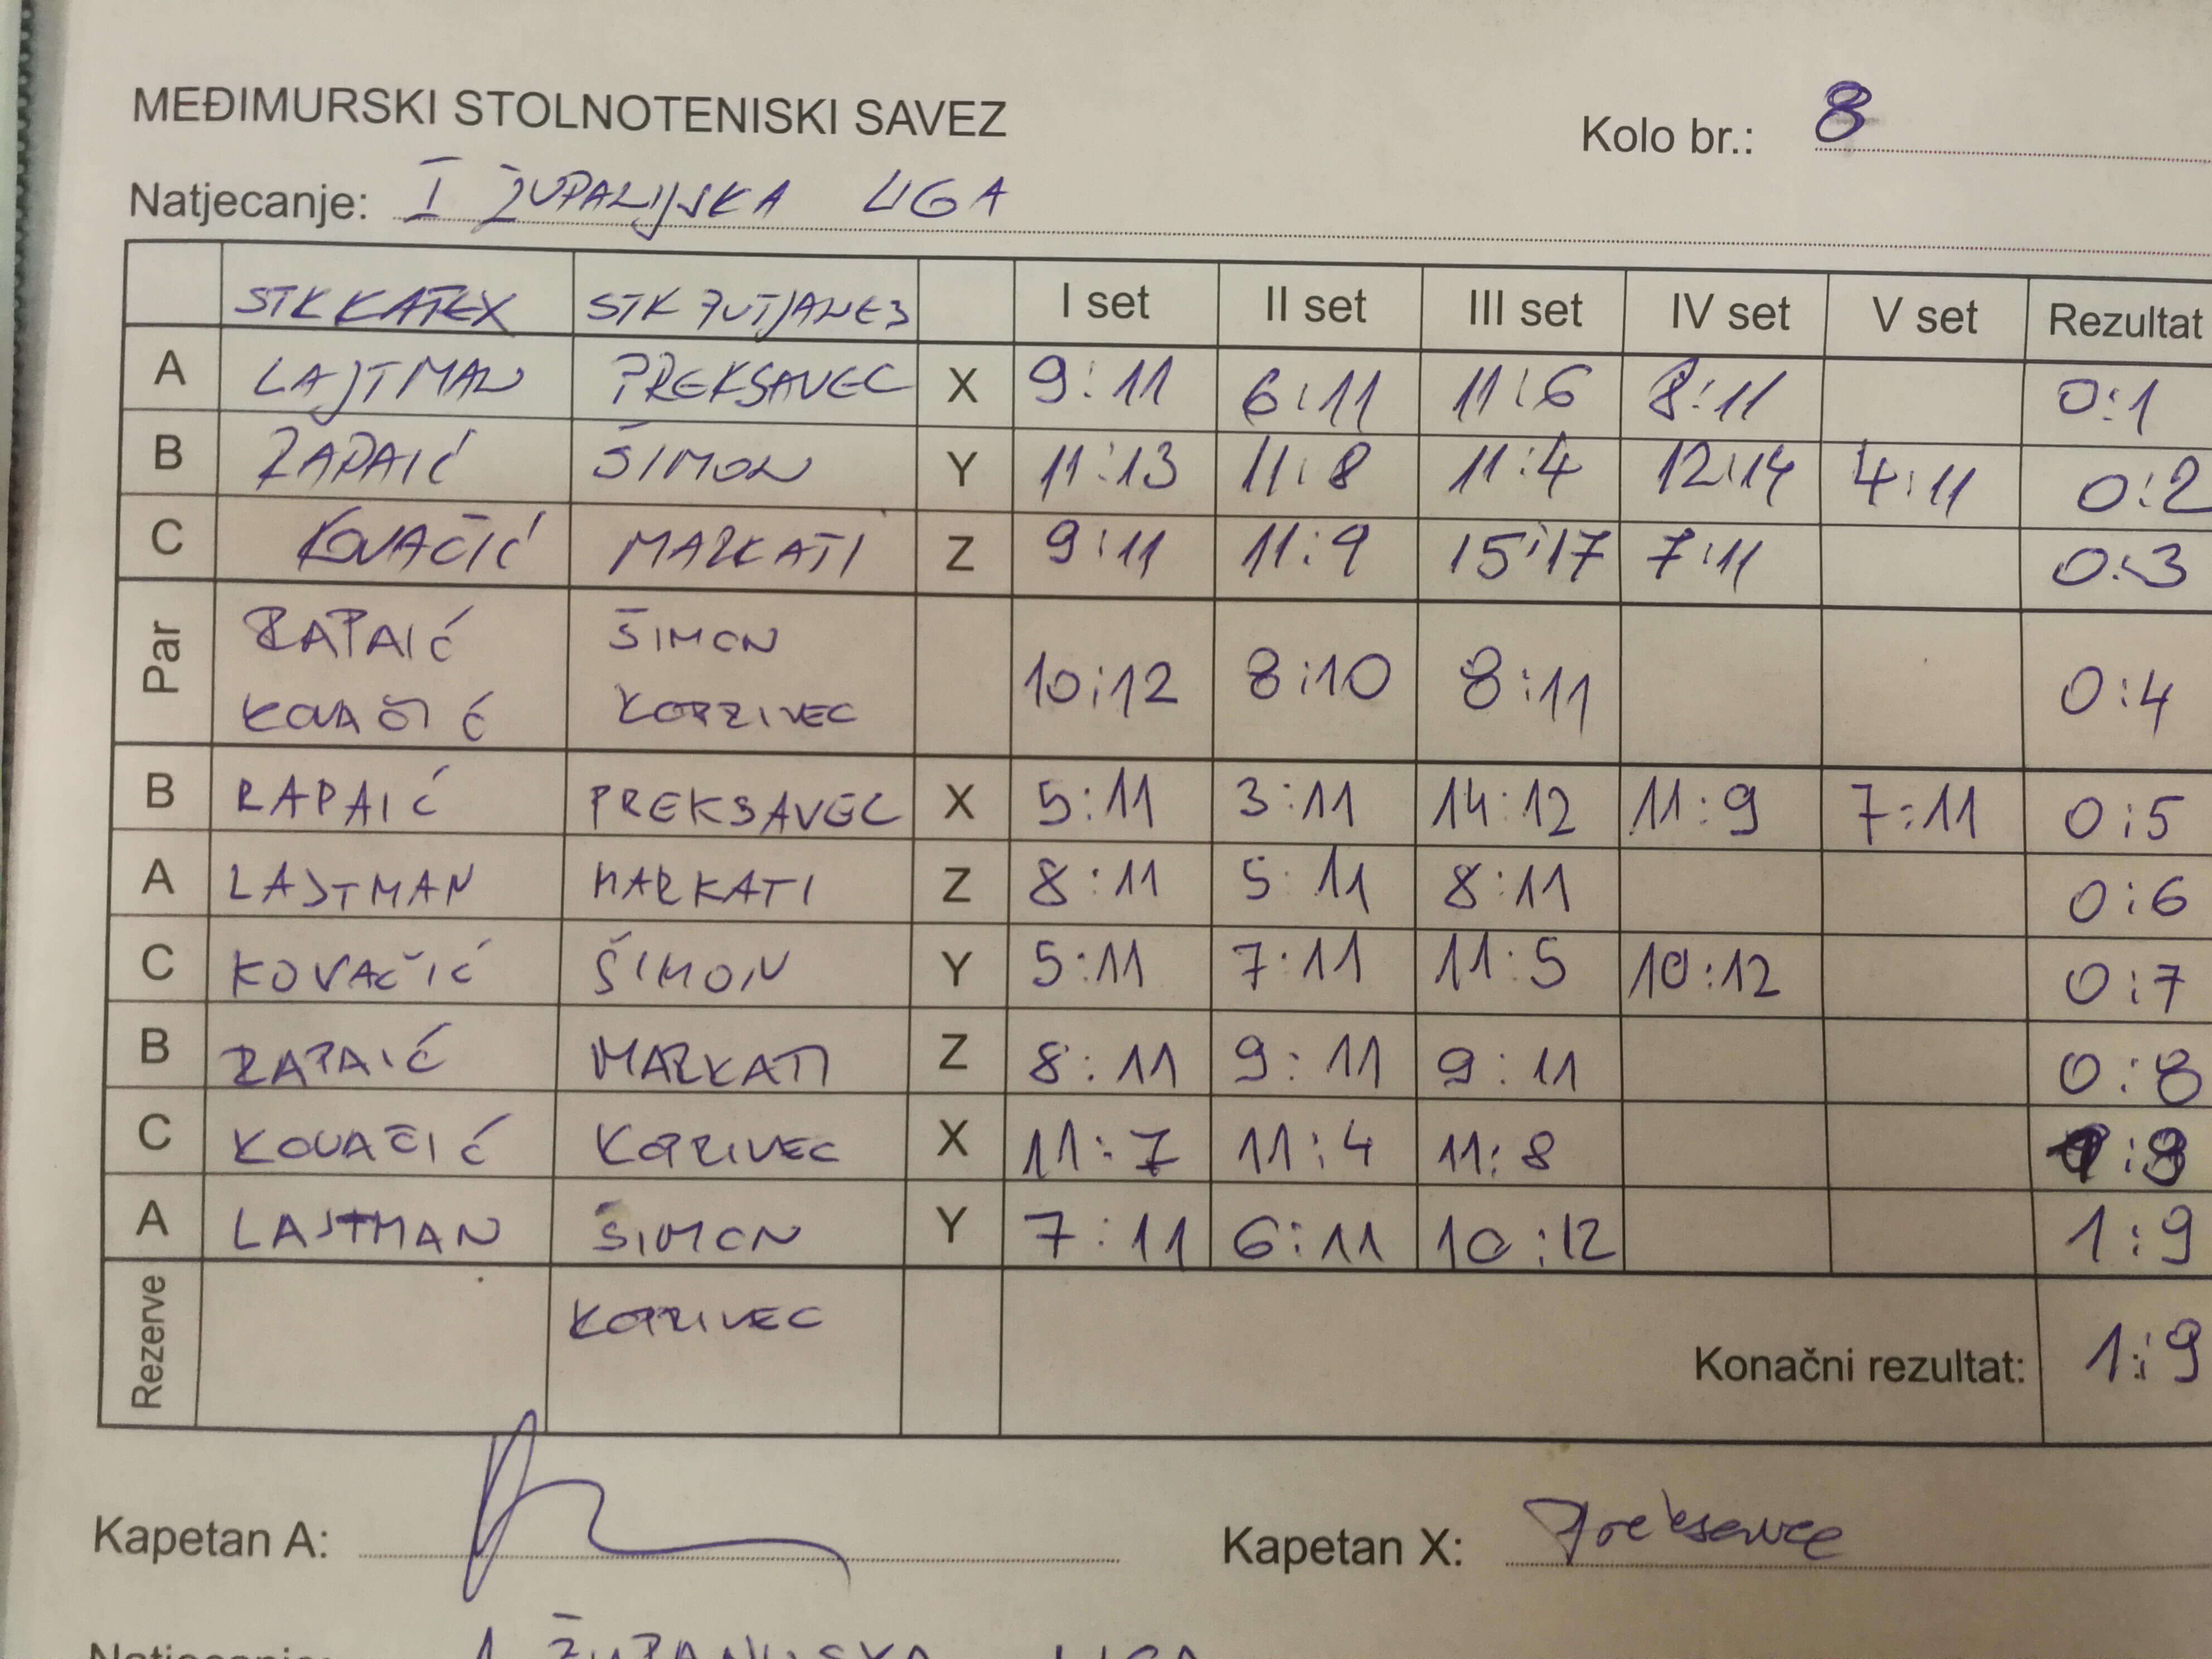 MEĐIMURSKI STOLNOTENISKI SAVEZ
Kolo br.: 8
Natjecanje: I ŽUPANIJSKA LIGA
STK KATEX STK PUTJANE3 I set II set III set IV set V set Rezultat
A LAJTMAN PREKSAVEC X 9:11 6:11 11:6 8:11 0:1
B RAPAIĆ ŠIMON Y 11:13 11:8 11:4 12:14 4:11 0:2
C KOVAČIĆ MARKATI Z 9:11 11:9 15:17 7:11 0:3
Par RAPAIĆ KOVAČIĆ ŠIMON KORRIVEC 10:12 8:10 8:11 0:4
B RAPAIĆ PREKSAVEC X 5:11 3:11 14:12 11:9 7:11 0:5
A LAJTMAN MARKATI Z 8:11 5:11 8:11 0:6
C KOVAČIĆ ŠIMON Y 5:11 7:11 11:5 10:12 0:7
B RAPAIĆ MARKATI Z 8:11 9:11 9:11 0:8
C KOVAČIĆ X 11:7 11:4 11:8 1:8
A LAJTMAN ŠIMON Y 7:11 6:11 10:12 1:9
Rezerve
Konačni rezultat: 1:9
Kapetan A:
Kapetan X: Preksavec
Natjecanje: 1 ŽUPANIJSKA LIGA